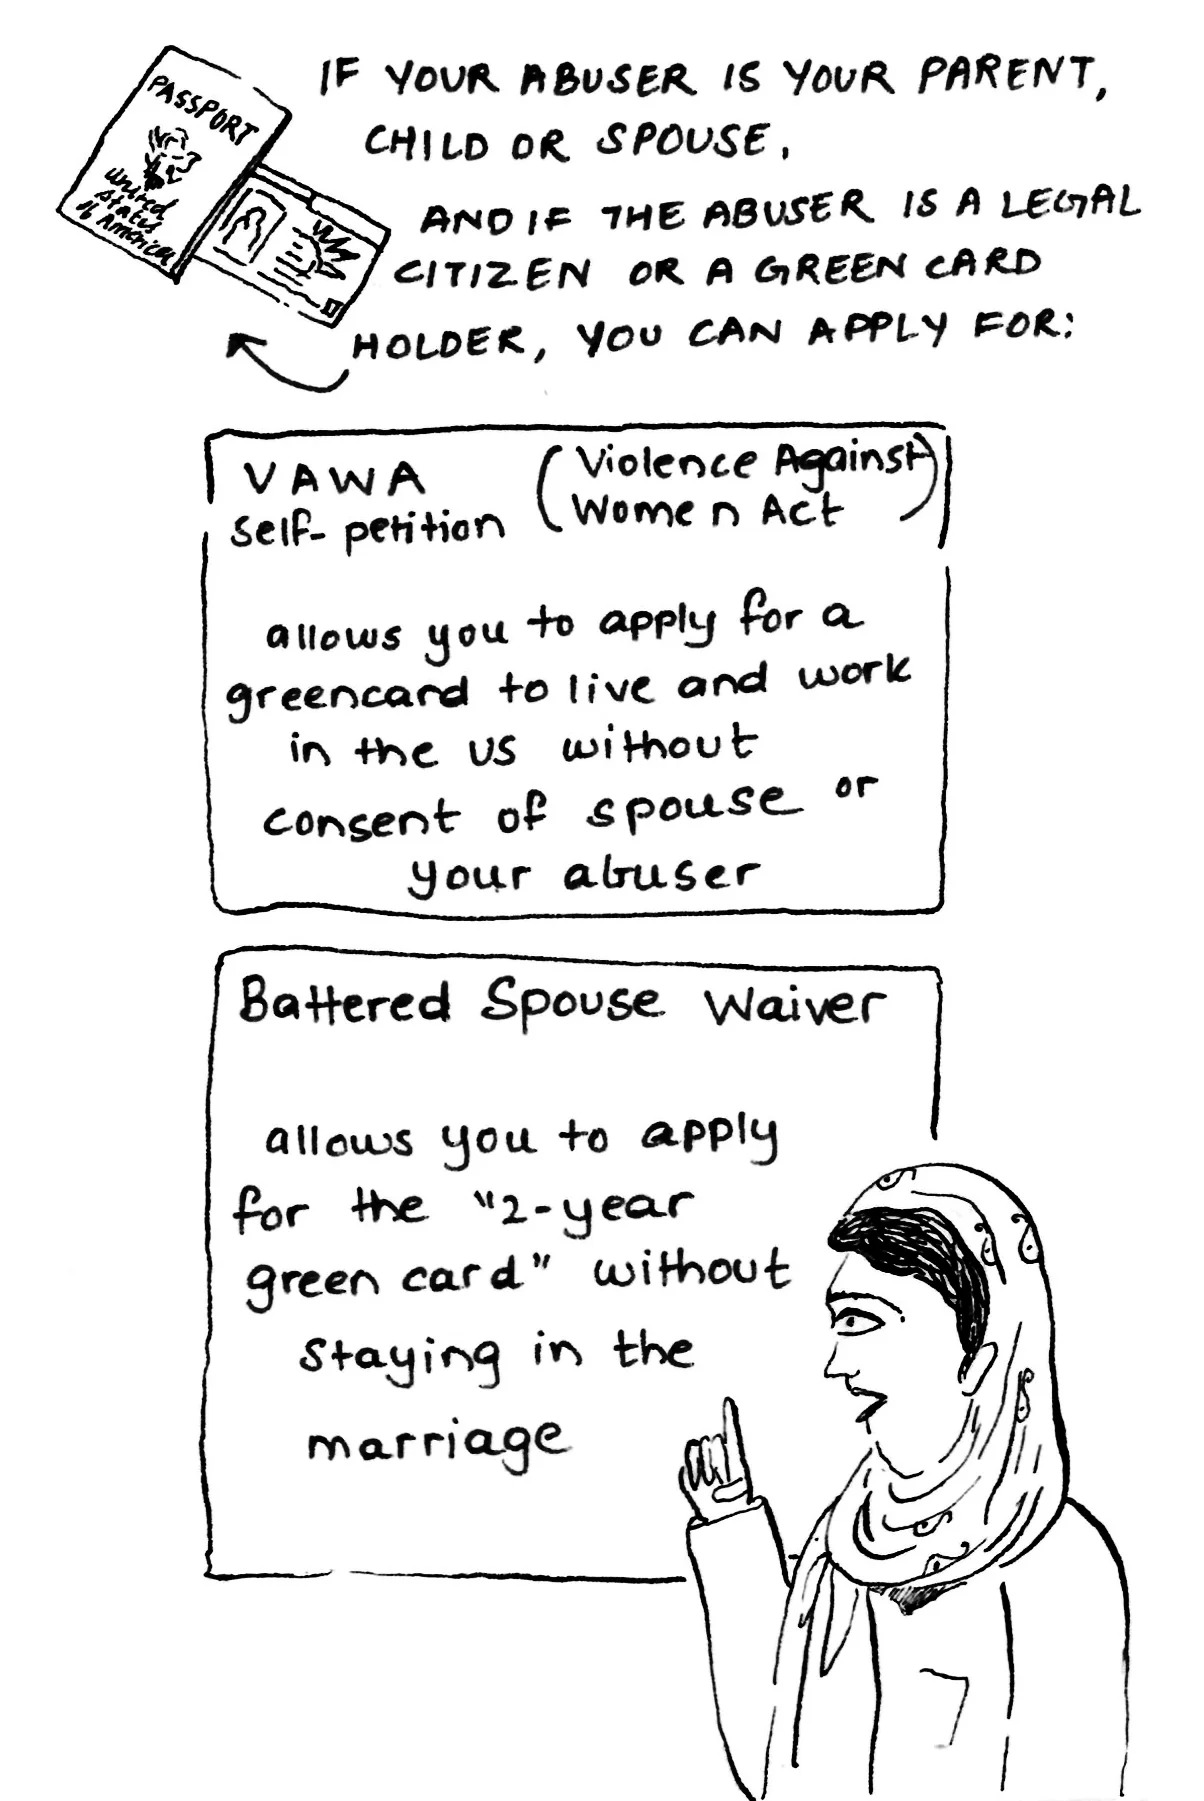 PASSPORT
United
States
of
America
IF YOUR ABUSER IS YOUR PARENT,
CHILD OR SPOUSE,
AND IF THE ABUSER IS A LEGAL
CITIZEN OR A GREEN CARD
HOLDER, YOU CAN APPLY FOR:
VAWA (Violence Against
Self-petition Women Act)
allows you to apply for a
greencard to live and work
in the US without
consent of spouse or
your abuser
Battered Spouse Waiver
allows you to apply
for the "2-year
green card" without
staying in the
marriage